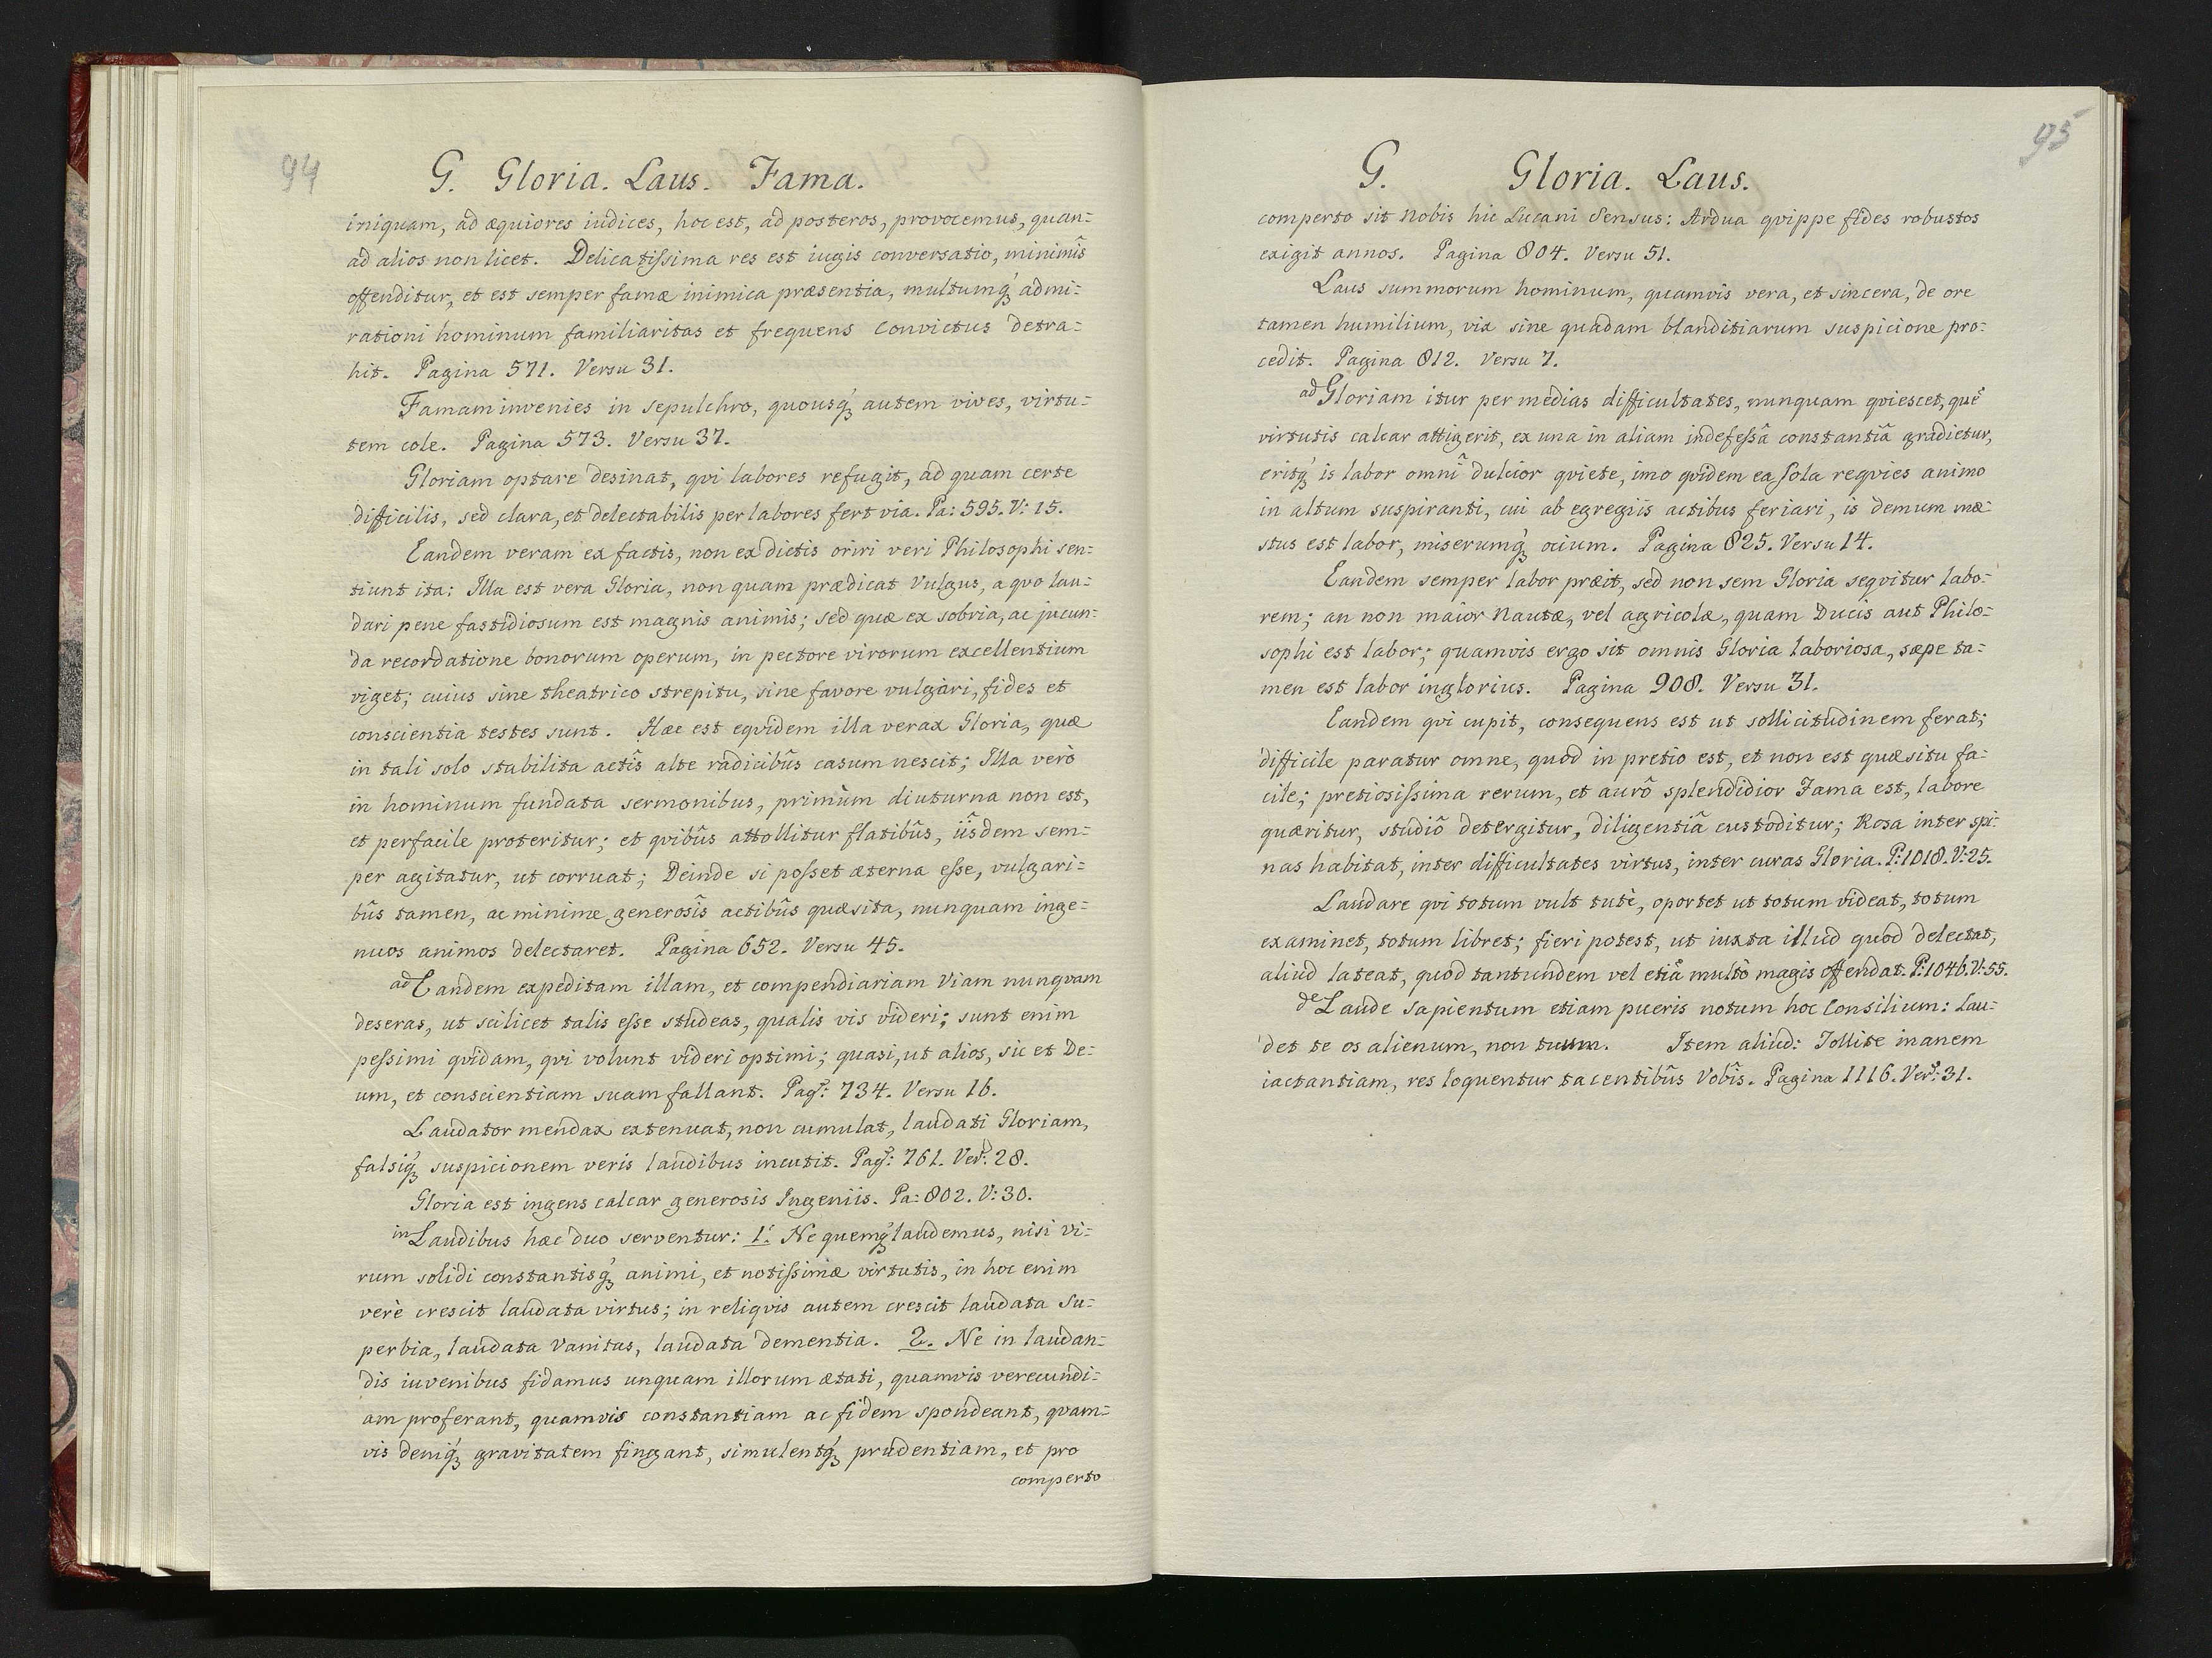 94
G. Gloria. Laus. Fama.
iniquam, ad æquiores iudices, hoc est, ad posteros, provocemus, quan=
ad alios non licet. Delicatissima res est iugis conversatio, minimîs
offenditur, et est semper famæ inimica præsentia, multumq́ꝫ admi=
rationi hominum familiaritas et frequens convictus detra=
hit. Pagina 571. Versu 31.
Famam invenies in sepulchro, quousq́ꝫ autem vives, virtu=
tem cole. Pagina 573. Versu 37.
Gloriam optare desinat, qvi labores refugit, ad quam certe
difficilis, sed clara, et delectabilis per labores fert via. Pa: 595. V: 15.
Eandem veram ex factis, non ex dictis oriri veri Philosophi sen=
tiunt ita: Illa est vera Gloria, non quam prædicat Vulgus, a qvo lau=
dari pene fastidiosum est magnis animis; sed quæ ex sobria, ac jucun=
da recordatione bonorum operum, in pectore virorum excellentium
viget; cuius sine theatrico strepitu, sine favore vulgari, fides et
conscientia testes sunt. Hæc est eqvidem illa verax Gloria, quæ
in tali solo stabilita actîs alte radicibûs casum nescit; Illa verò
in hominum fundata sermonibus, primùm diuturna non est,
et perfacile proteritur; et qvibûs attollitur flatibûs, iîsdem sem=
per agitatur, ut corruat; Deinde si posset æterna esse, vulgari=
bûs tamen, ac minime generosîs actibûs quæsita, nunquam inge=
nuos animos delectaret. Pagina 652. Versu 45.
ad Eandem expeditam illam, et compendiariam Viam nunqvam
deseras, ut scilicet talis esse studeas, qualis vis videri; sunt enim
pessimi qvidam, qvi volunt videri optimi; quasi, ut alios, sic et De=
um, et conscientiam suam fallant. Pag: 734. Versu 16.
Laudator mendax extenuat, non cumulat, laudati Gloriam,
falsiq́ꝫ suspicionem veris laudibus incutit. Pag: 761. Ver: 28.
Gloria est ingens calcar generosis Ingeniis. Pa: 802. V: 30.
in Laudibus hæc duo serventur: 1. Ne quemq́ꝫ laudemus, nisi vi=
rum solidi constantisq́ꝫ animi, et notissimæ virtutis, in hoc enim
verè crescit laudata virtus; in reliqvis autem crescit laudata Su=
perbia, laudata Vanitas, laudata dementia. 2. Ne in laudan=
dis iuvenibus fidamus unquam illorum ætati, quamvis verecundi=
am proferant, quamvis constantiam ac fidem spondeant, qvam=
vis deniq́ꝫ gravitatem fingant, simulentq́ꝫ prudentiam, et pro
comperto
95
G. Gloria. Laus.
comperto sit nobis hic Lucani Sensus: Ardua qvippe fides robustos
exigit annos. Pagina 804. Versu 51.
Laus summorum hominum, quamvis vera, et sincera, de ore
tamen humilium, vix sine quadam blanditiarum suspicione pro=
cedit. Pagina 812. Versu 7.
ad Gloriam itur per medias difficultates, nunquam qviescet, quē
virtutis calcar attigerit, ex una in aliam indefessâ constantiâ gradietur,
eritq́ꝫ is labor omnî dulcior qviete, imo qvidem ea sola reqvies animo
in altum suspiranti, cui ab egregiis actibus feriari, is demum mæ=
stus est labor, miserumq́ꝫ ocium. Pagina 825. Versu 14.
Eandem semper labor præit, sed non sem Gloria seqvitur labo=
rem; an non maior Nautæ, vel agricolæ, quam Ducis aut Philo=
sophi est labor; quamvis ergo sit omnis Gloria laboriosa, sæpe ta=
men est labor inglorius. Pagina 908. Versu 31.
Eandem qvi cupit, consequens est ut sollicitudinem ferat;
difficile paratur omne, quod in pretio est, et non est quæsitu fa=
cile; pretiosissima rerum, et aurô splendidior Fama est, labore
quæritur, studiô detergitur, diligentiâ custoditur; Rosa inter spi=
nas habitat, inter difficultates virtus, inter curas Gloria. P: 1018. V: 25.
Laudare qvi totum vult tutè, oportet ut totum videat, totum
examinet, totum libret; fieri potest, ut iuxta illud quod delectat,
aliud lateat, quod tantundem vel etiā multò magis offendat. P: 1046. V: 55.
de Laude sapientum etiam pueris notum hoc Consilium: Lau=
det te os alienum, non tuum. Item aliud: Tollite inanem
iactantiam, res loquentur tacentibûs Vobîs. Pagina 1116. Ver: 31.